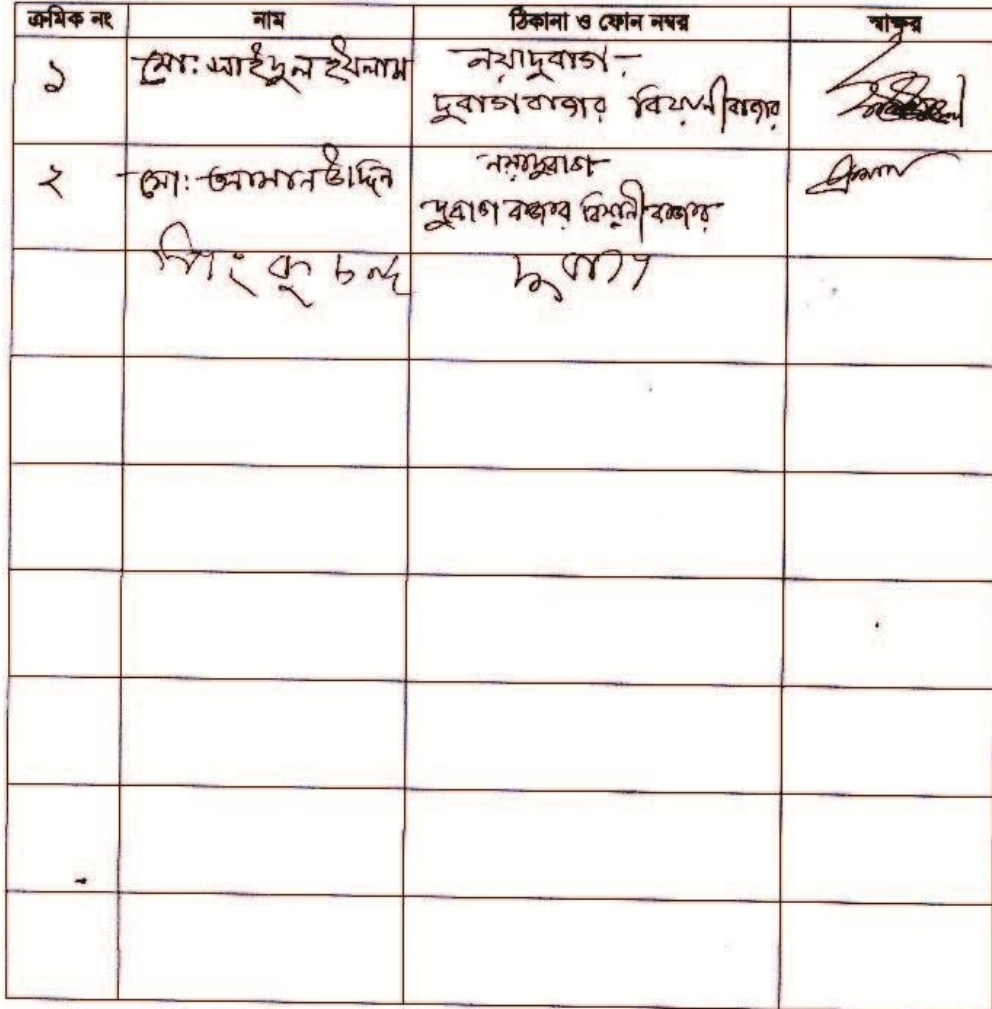 ক্রমিক নং নাম ঠিকানা ও ফোন নম্বর স্বাক্ষর
১ মো: সাইদুল ইসলাম নয়াদুবাগ
দুবাগ বাজার বিয়ানীবাজার
২ মো: আমান উদ্দিন নয়াদুবাগ
দুবাগ বাজার বিয়ানীবাজার
চন্দ দুবাগ